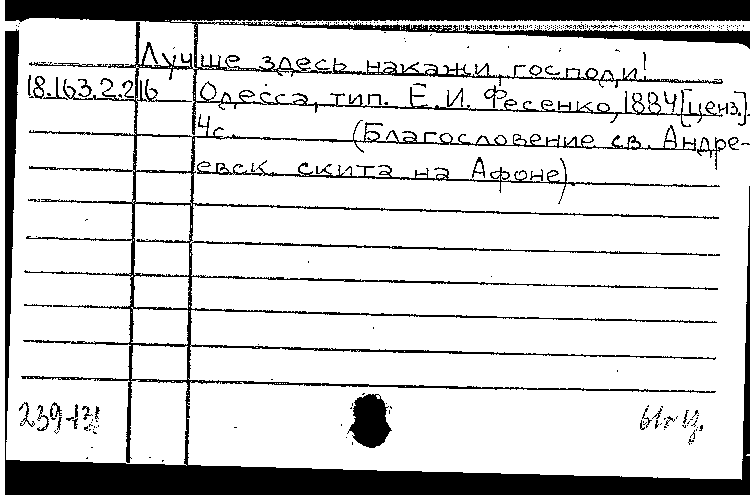 Лучше здесь накажи, господи!
18.163.2.216 Одесса, тип. Е.И. Фесенко, 1884 [ценз].
4с. (Благословение св. Андре-
евск. скита на Афоне).